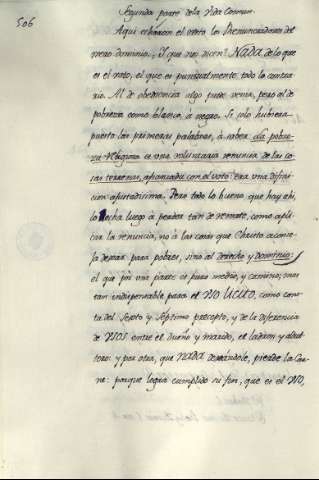 506
Segunda parte de la Vida Comun.
Aqui echaron el resto los Renunciadores del
mero dominio. Y que nos dicen? NADA de lo que
es el voto, el que es puntualmente todo lo contra
rio. Al de obediencia algo puede venir, pero al de
pobreza como blanco, à negro. Si solo hubiera
puesto las primeras palabras, à saber la pobre
za Religiosa es una voluntaria renuncia de las co
sas terrenas, afianzada con el voto: era una difini
cion ajustadisima. Pero todo lo bueno que hay ahi,
lo hecha luego à perder tan de remate, como apli
car la renuncia, no à las cosas que Christo aconse
ja dexar para pobres, sino al derecho y dominio;
el que por una parte es puro medio, y camino, mas
tan indispensable para el NO LICITO, como cons
ta del Sexto y Septimo precepto, y de la diferencia
de VSOS entre el dueño y marido, el ladron y adul
tero: y por otra, que NADA dexandole, pierde la Car
ne: porque logra cumplido su fin, que es el NO,